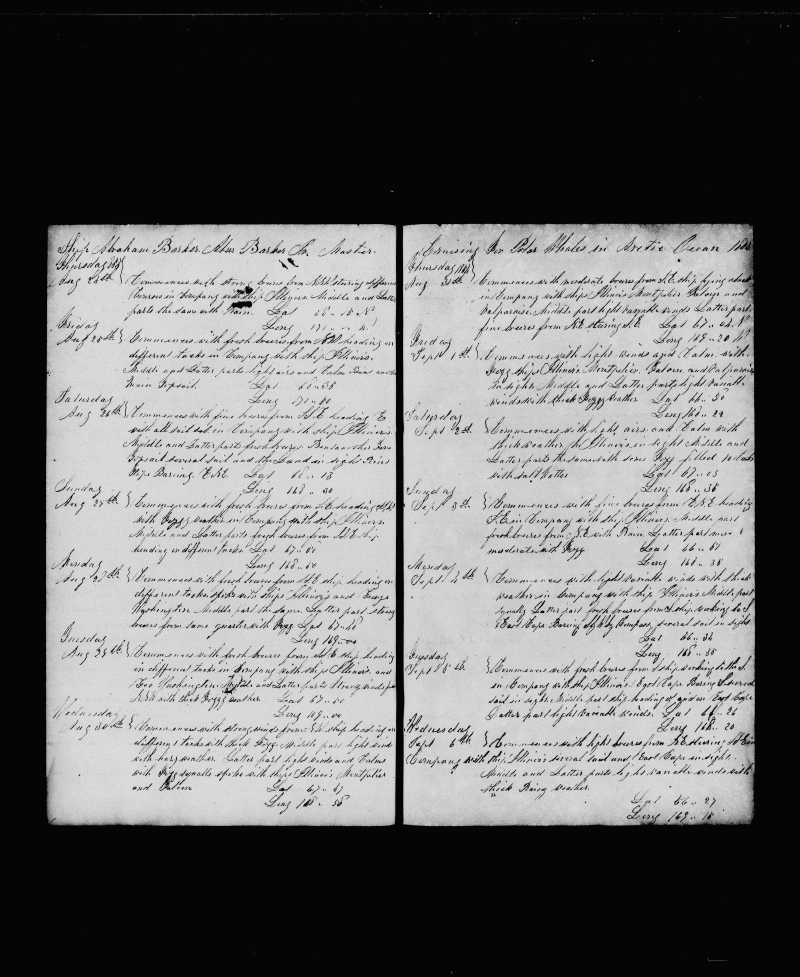 Ship Abraham Barker Abm Barker Jr. Master.
Thursday
Aug 24th Commences with strong breeses from NNE steering different
courses in Company with ship Illinois Middle and Latter
parts the same with Rain. Lat 68 .. 15 N
Long 171 .. W
Friday
Aug 25th Commences with fresh breeses from NW heading on
different tacks in Company with ship Illinois.
Middle and Latter parts light airs and Calm
Main Topsail. Lat 68 .. 35
Long 170 .. 00
Saturday
Aug 26th Commences with fine breeses from heading E
with all sail set in Company with ship Illinois
Middle and Latter parts fresh breeses
Topsail several sail and the Land in sight Point
Hope Bearing E.N.E. Lat 68 .. 18
Long 168 .. 30
Sunday
Aug 27th Commences with fresh breeses from heading
with Foggy weather in Company with ship Illinois
Middle and Latter parts fresh breeses from N.E. ship
heading on different tacks Lat 67 ..
Long 168 .. 50
Monday
Aug 28th Commences with fresh breeses from N.E. ship heading on
different tacks spoke with ships Illinois and George
Washington. Middle part the same. Latter part strong
breeses from same quarter with Fogg Lat 67 ..
Long 169 .. 00
Tuesday
Aug 29th Commences with fresh breeses from N.E. ship heading
on different tacks in Company with ships Illinois and
Geo Washington. Middle and Latter parts strong winds from
with thick Foggy weather Lat 67 .. 00
Long 169 .. 00
Wednesday
Aug 30th Commences with strong winds from ship heading on
different tacks with thick Fogg. Middle part light winds
with hazy weather. Latter part light winds and Calms
with Fogg squalls spoke with ships Illinois Montpelier
and Lat 67 .. 47
Long 168 .. 56
Cruising for Polar Whales in Arctic Ocean
Thursday
Aug 31st Commences with moderate breeses from ship lying aback
in Company with ships Illinois Montpelier and
Valparaiso. Middle part light Variable winds Latter part
fine breeses from N.E. steering S.E. Lat 67 .. N
Long 168 .. 20 W
Friday
Sept 1st Commences with light winds and Calm with
Fogg ships Illinois Montpelier, and Valparaiso
in sight. Middle and Latter parts light Variable
winds with thick Foggy weather Lat 66 .. 50
Long 168 .. 24
Saturday
Sept 2nd Commences with light airs and Calm with
thick weather the Illinois in sight Middle and
Latter parts the same with some Fogg filled 10 Casks
with salt Watter Lat 67 .. 03
Long 168 .. 38
Sunday
Sept 3rd Commences with fine breeses from E.N.E. heading
S.E. in Company with ship Illinois. Middle part
fresh breeses from N.E. with Rain Latter part more
moderate with Fogg Lat 66 .. 51
Long 168 .. 38
Monday
Sept 4th Commences with light Variable winds with thick
weather in Company with ship Illinois Middle part
squally Latter part fresh breeses from S ship working to S
East Cape Bearing by Compass, several sail in sight
Lat 66 .. 34
Long 168 .. 35
Tuesday
Sept 5th Commences with fresh breeses from S working to the S
in Company with ship Illinois. East Cape Bearing several
sail in sight. Middle part ship heading off and on East Cape
Latter part light Variable winds. Lat 66 .. 26
Long 168 .. 20
Wednesday
Sept 6th Commences with light breeses from N.E. steering in
Company with ship Illinois several sail and East Cape in sight.
Middle and Latter parts light Variable winds with
thick Rainy weather.
Lat 66 .. 27
Long 169 .. 15